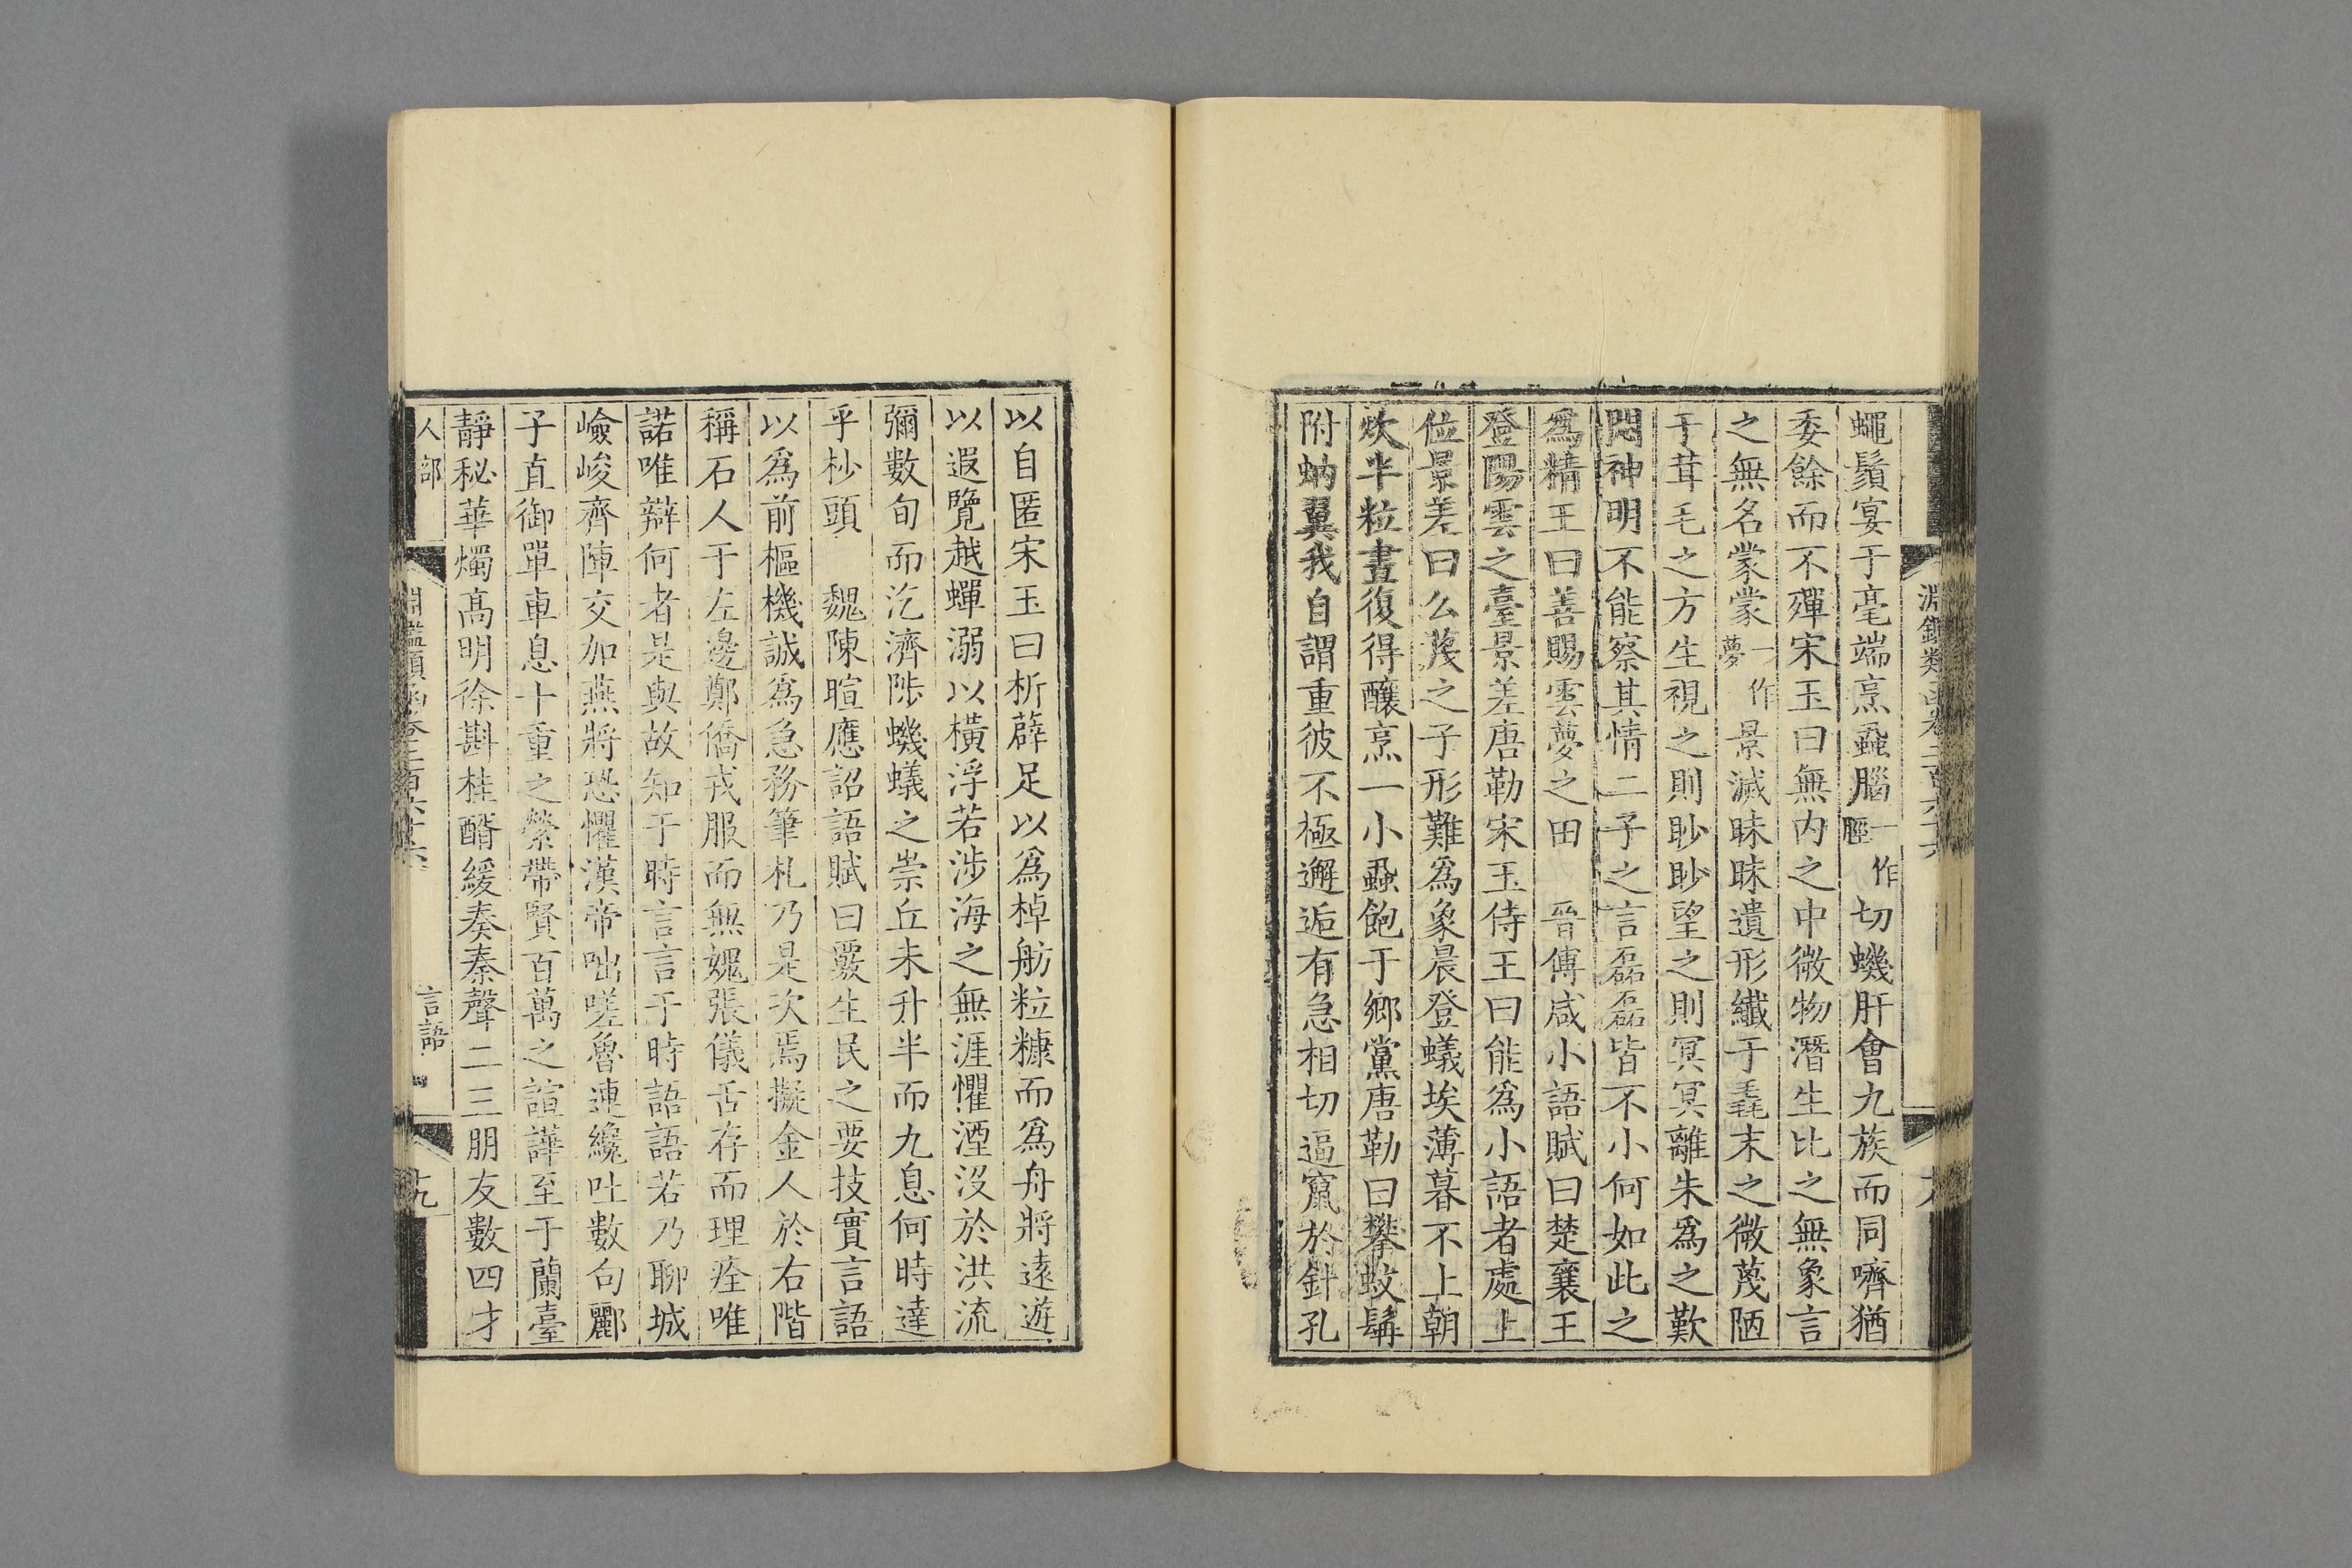 蠅鬚宴于毫端烹蝨腦一作脛切蟣肝會九族而同嚌猶
委餘而不殫宋玉曰無內之中微物潛生比之無象言
之無名蒙蒙一作夢景滅昧昧遺形纖于毳末之微蔑陋
于茸毛之方生視之則眇眇望之則冥冥離朱爲之歎
悶神明不能察其情二子之言磊磊皆不小何如此之
爲精王曰善賜雲夢之田　晉傅咸小語賦曰楚襄王
登陽雲之臺景差唐勒宋玉侍王曰能爲小語者處上
位景差曰幺蔑之子形難爲象晨登蟻埃薄暮不上朝
炊半粒晝復得釀烹一小蝨飽于鄉黨唐勒曰攀蚊髯
附蚋翼我自謂重彼不極邂逅有急相切逼竄於針孔
以自匿宋玉曰析薜足以爲棹舫粒糠而爲舟將遠遊
以遐覽越蟬溺以橫浮若涉海之無涯懼湮沒於洪流
彌數旬而汔濟陟蟣蟻之崇丘未升半而九息何時達
乎杪頭　魏陳暄應詔語賦曰覈生民之要技實言語
以爲前樞機誠爲急務筆札乃是次焉擬金人於右階
稱石人于左邊鄭僑戎服而無媿張儀舌存而理痊唯
諾唯辯何者是與故知于時言言于時語語若乃聊城
嶮峻齊陣交加燕將恐懼漢帝咄嗟魯連纔吐數句酈
子直御單車息十重之縈帶賢百萬之諠譁至于蘭臺
靜秘華燭高明徐斟桂醑緩奏秦聲二三朋友數四才
人部
淵鑑類函卷二百六十六
言語
十九